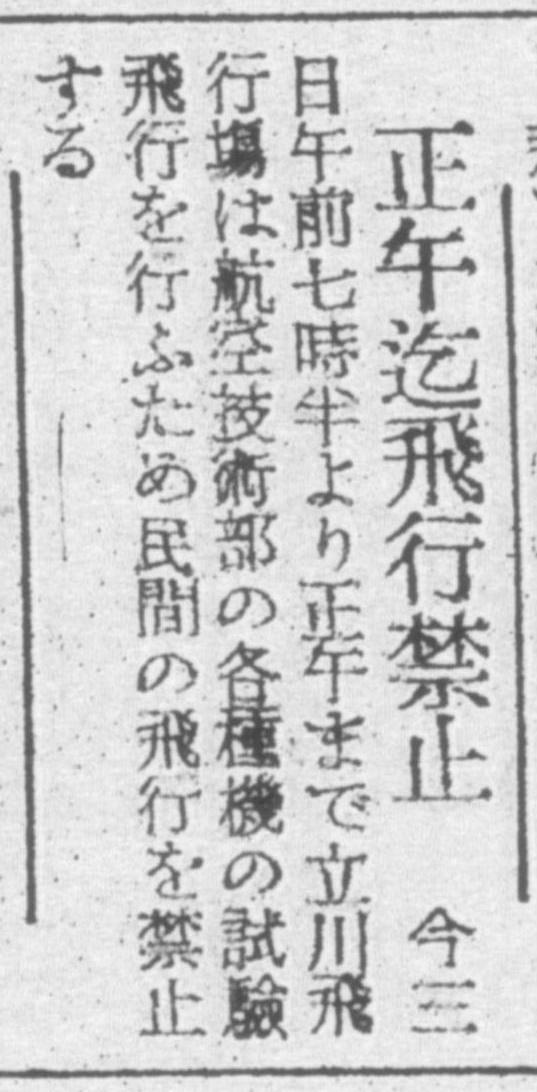 正午迄飛行禁止 今三
日午前七時半より正午まで立川飛
行場は航空技術部の各種機の試驗
飛行を行ふため民間の飛行を禁止
する